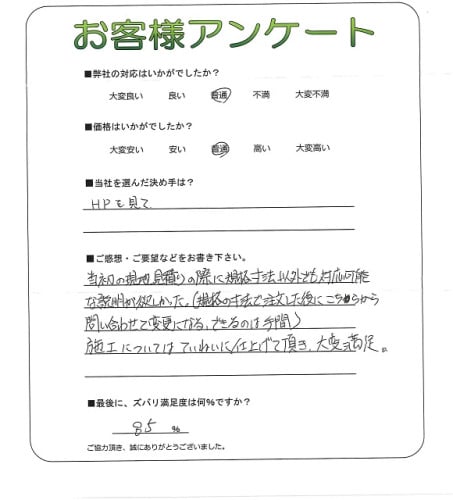 お客様アンケート
■弊社の対応はいかがでしたか?
大変良い 良い 普通 不満 大変不満
■価格はいかがでしたか?
大変安い 安い 普通 高い 大変高い
■当社を選んだ決め手は?
HPを見て
■ご感想・ご要望などをお書き下さい。
当初の現地見積りの際に規格寸法以外でも対応可能
な説明が欲しかった。(規格の寸法で注文した後にこちらから
問い合わせて変更になる、できるのは手間)
施工についてはていねいに仕上げて頂き、大変満足。
■最後に、ズバリ満足度は何%ですか?
85 %
ご協力頂き、誠にありがとうございました。